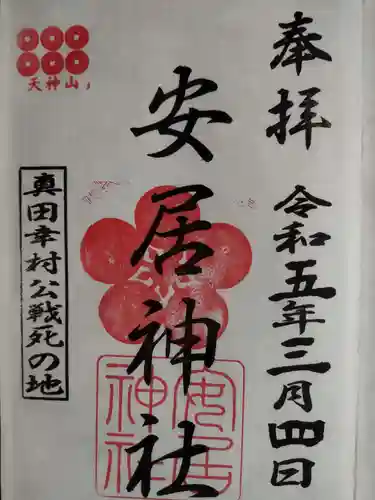 奉拝
令和五年三月四日
安居神社
天神山
真田幸村公戦死の地
安居
神社